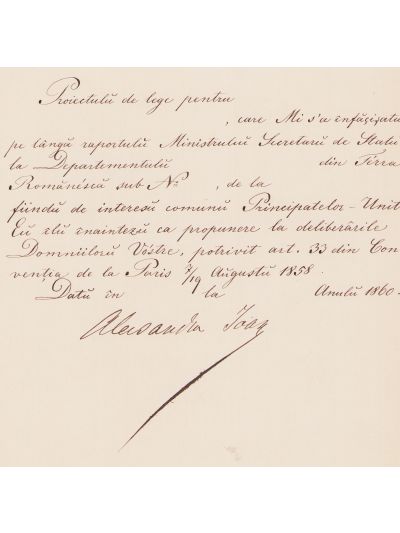 Proiectulŭ de lege pentru
, care Mi s'a înfăçişatu
pe lângŭ raportulŭ Ministruluĭ Secretarŭ de Statu
la Departementulŭ din Ţérra
Românéscă sub No , de la
fiindŭ de interesŭ comunŭ Principatelor-Unit
Eŭ ălŭ înaintezŭ ca propunere la deliberările
Domniilorŭ Vóstre, potrivit art. 33 din Con
venţia de la Paris 7/19 Augustŭ 1858.
Datŭ în la Anulŭ 1860.
Alecsandru Ioan